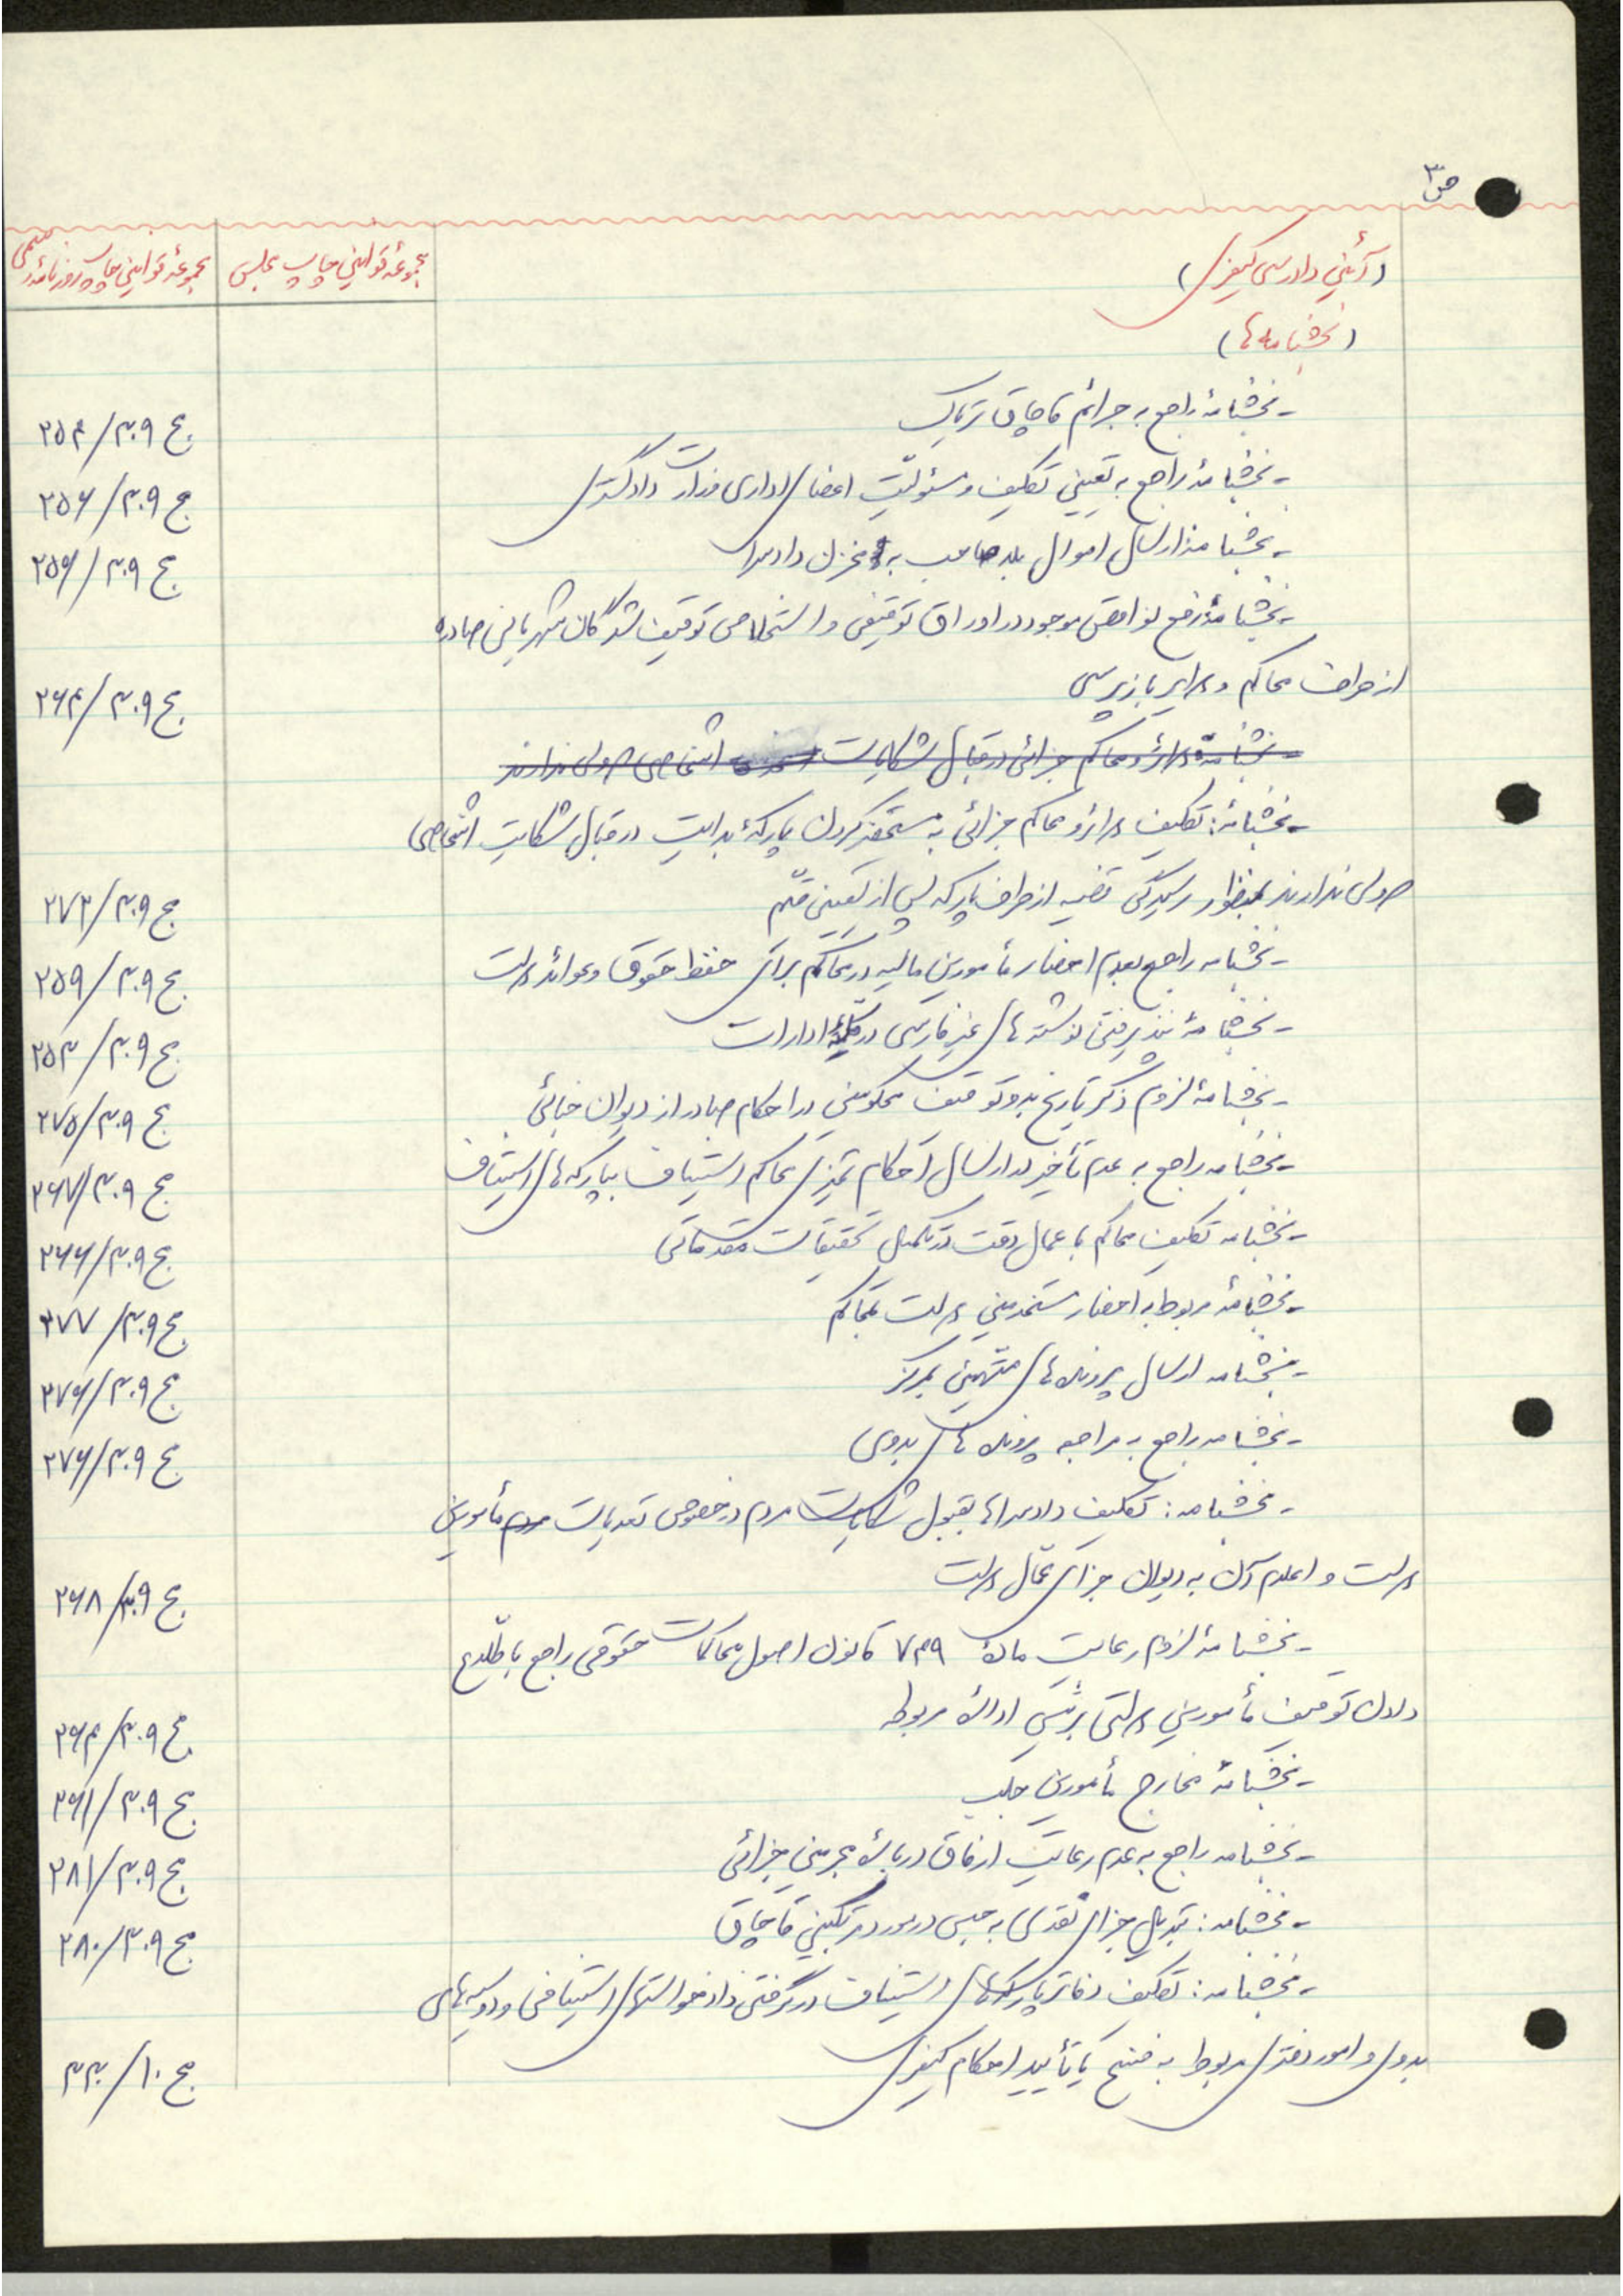 ص ۳
(آئین دادرسی کیفری) مجموعهٔ قوانین چاپ مجلس مجموعهٔ قوانین چاپ روزنامهٔ رسمی
(بخشنامه‌ها)
- بخشنامهٔ راجع به جرائم قاچاق تریاک ج ۳۰۹/۲۵۴
- بخشنامهٔ راجع به تعیین تکلیف و مسئولیت اعضای اداری وزارت دادگستری ج ۳۰۹/۲۵۶
- بخشنامهٔ ارسال اموال بلاصاحب به مخزن دادسرا ج ۳۰۹/۲۵۶
- بخشنامهٔ رفع نواقص موجود در اوراق توقیفی و استخلاصی توقیف شدگان شهربانی صادره
از طرف محاکم و دوایر بازپرسی ج ۳۰۹/۲۶۴
- بخشنامهٔ دوائر و محاکم جزائی در قبال شکایت اشخاصی دعوی ندارند
- بخشنامه: تکلیف دوائر و محاکم جزائی به مستحضر کردن پارکهٔ بدایت در قبال شکایت اشخاصی
دعوی ندارند بمنظور رسیدگی قضیه از طرف پارکه پس از تعیین قیّم ج ۳۰۹/۲۷۲
- بخشنامه راجع بعدم احضار مأمورین مالیه در محاکم برای حفظ حقوق و عوائد دولت ج ۳۰۹/۲۵۹
- بخشنامهٔ نپذیرفتن نوشته‌های غیرفارسی در کلیهٔ ادارات ج ۳۰۹/۲۵۳
- بخشنامهٔ لزوم ذکر تاریخ بدو توقیف محکومین در احکام صادر از دیوان جنائی ج ۳۰۹/۲۷۵
- بخشنامه راجع به عدم تأخیر در ارسال احکام تمیزی محاکم استیناف بپارکه‌های استیناف ج ۳۰۹/۲۶۷
- بخشنامه تکلیف محاکم باعمال دقت در تکمیل تحقیقات مقدماتی ج ۳۰۹/۲۶۶
- بخشنامهٔ مربوط به احضار مستخدمین دولت بمحاکم ج ۳۰۹/۲۷۷
- بخشنامه ارسال پرونده‌های متهمین بمرکز ج ۳۰۹/۲۷۶
- بخشنامه راجع به مراجعه پرونده‌های بدوی ج ۳۰۹/۲۷۶
- بخشنامه: تکلیف دادسراها بقبول شکایات مردم در خصوص تعدیات مردم مأمورین
دولت و اعلام آن به دیوان جزای عمّال دولت ج ۳۰۹/۲۶۸
- بخشنامهٔ لزوم رعایت مادهٔ ۷۳۹ قانون اصول محاکمات حقوقی راجع باطّلاع
دادن توقیف مأمورین دولتی برئیس ادارهٔ مربوطه ج ۳۰۹/۲۶۴
- بخشنامهٔ مخارج مأمورین جلب ج ۳۰۹/۲۶۱
- بخشنامه راجع به عدم رعایت ارفاق دربارهٔ مجرمین جزائی ج ۳۰۹/۲۸۱
- بخشنامه: تبدیل جزای نقدی به حبس در مورد مرتکبین قاچاق ج ۳۰۹/۲۸۰
- بخشنامه: تکلیف دفاتر پارکه‌های استیناف در گرفتن دادخواستهای استینافی و دوسیه‌های
بدوی و امور دفتری مربوط به فسخ یا تأیید احکام کیفری ج ۱۰/۳۳۰